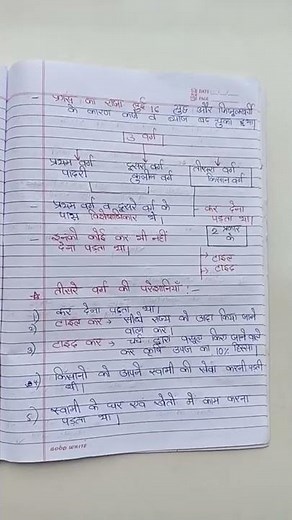 DATE
PAGE
- फ्रांस का राजा लुई 16 युद्ध और फिजूलखर्ची
के कारण कर्ज व ब्याज बढ़ चुका था।
3 वर्ग
प्रथम वर्ग दूसरा वर्ग तीसरा वर्ग
पादरी कुलीन वर्ग किसान वर्ग
- प्रथम वर्ग व दूसरे वर्ग के - कर देना
पास विशेषाधिकार थे। पड़ता था।
- इनको कोई कर भी नहीं 2 प्रकार
देना पड़ता था। के
→ टाइल
→ टाइद
तीसरे वर्ग की परेशानियाँ :-
1) कर देना पड़ता था।
2) टाइल कर → सीधे राज्य को अदा किया जाने
वाल कर।
3) टाइद कर → चर्च द्वारा वसूल किए जाने वाले
कर कृषि उपज का 10% हिस्सा।
4) किसानो को अपने स्वामी की सेवा करनी पड़ती
थी।
5) स्वामी के घर एव खेतो में काम करना
पड़ता था।
GOOD WRITE